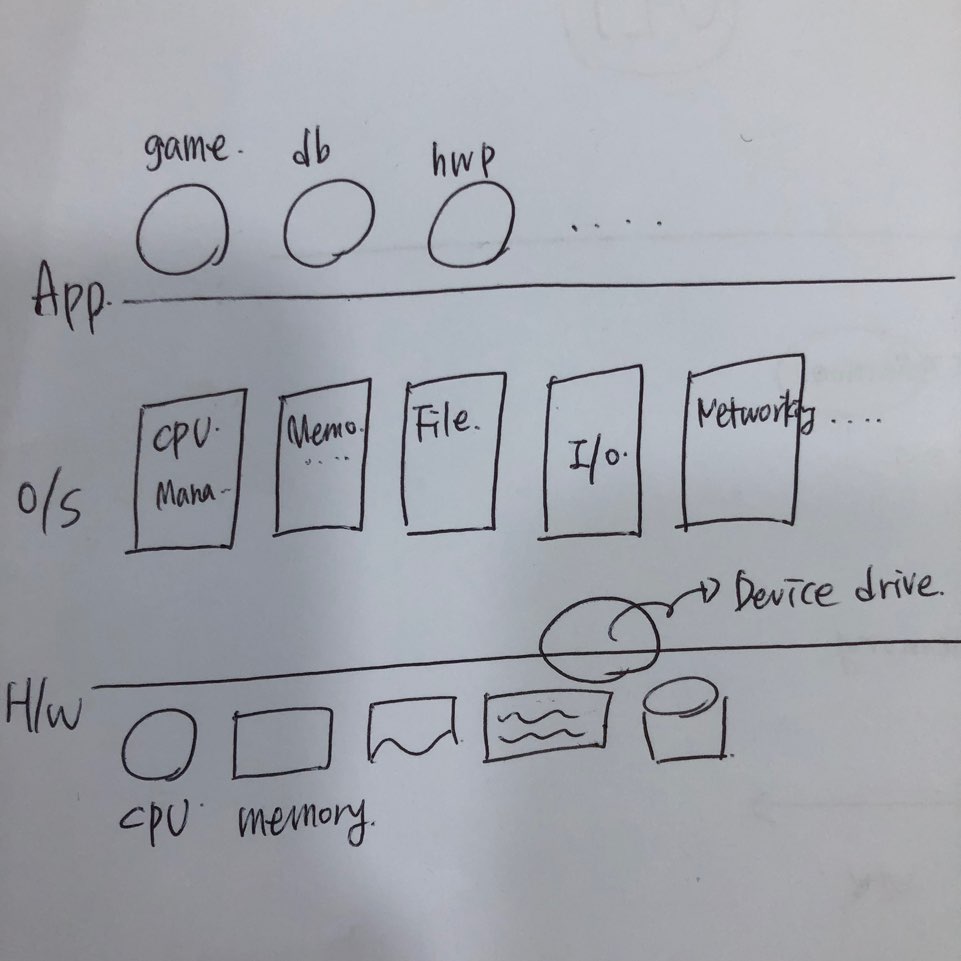 game. db hwp .....
App.
CPU. Memo. File. I/O. Networkg ....
Mana- ....
O/S
Device drive.
H/W
CPU. memory.